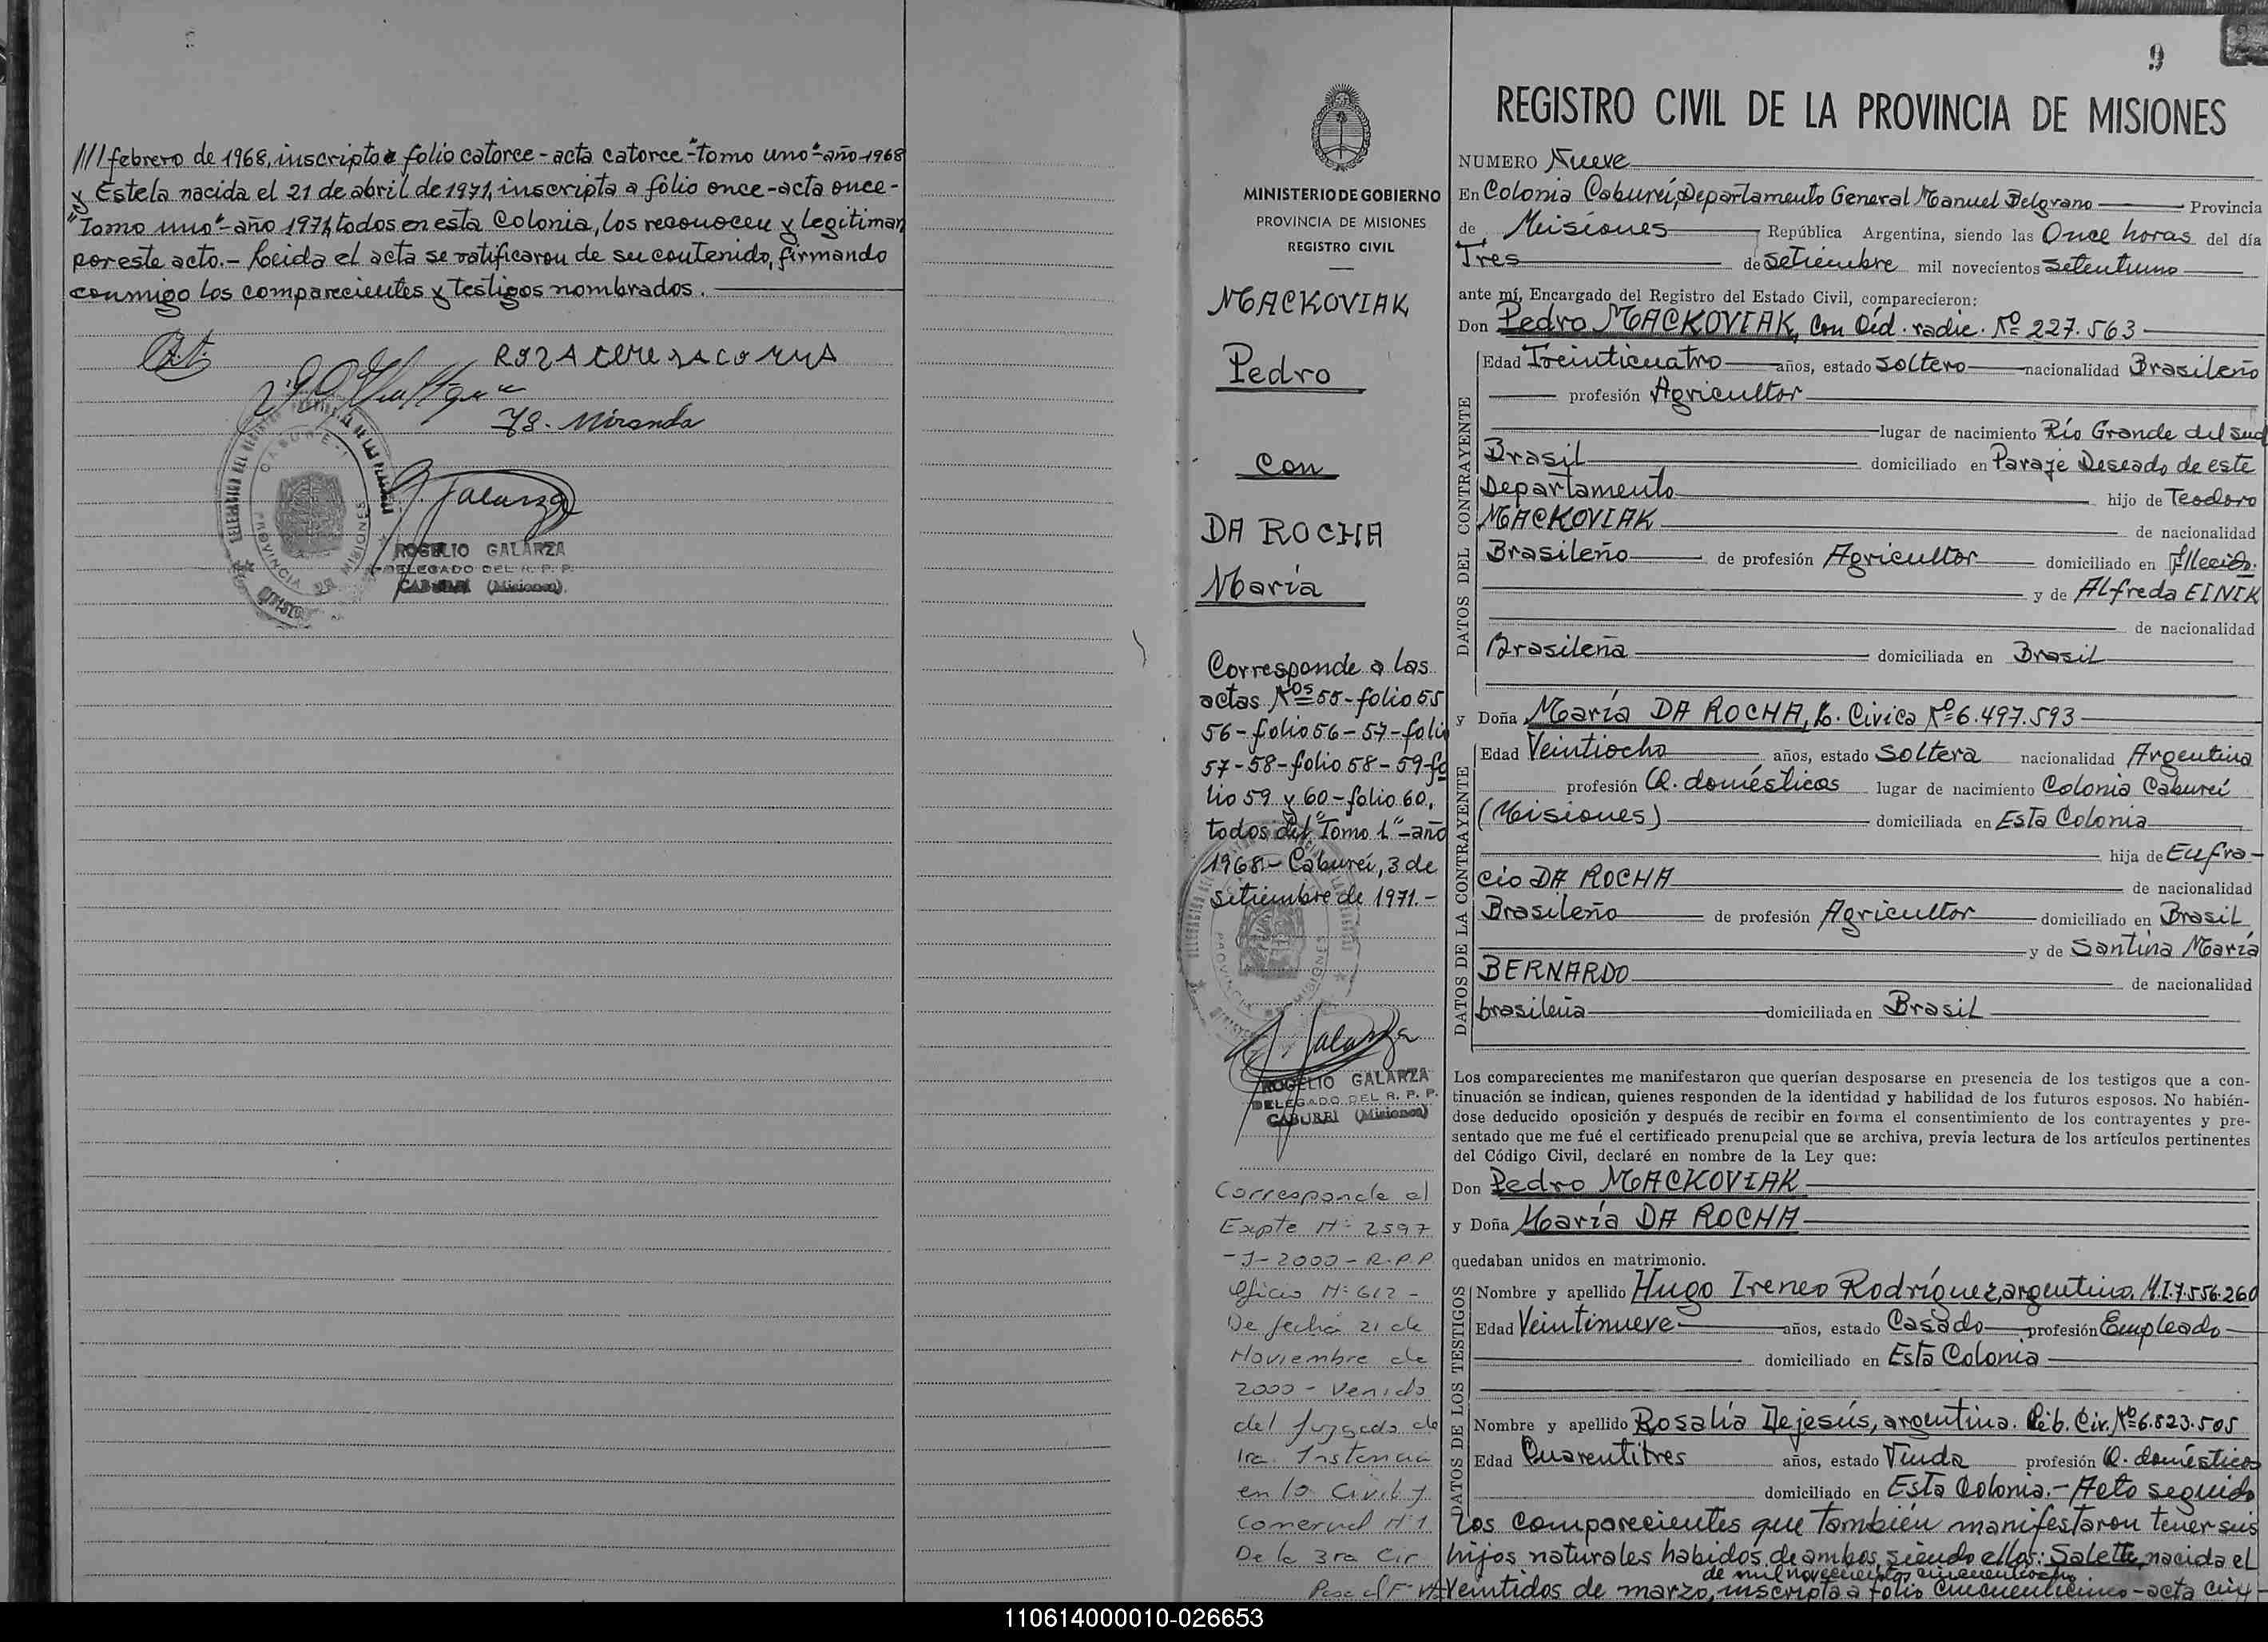 /// febrero de 1968, inscripto a folio catorce - acta catorce - "tomo uno" - año 1968
y Estela nacida el 21 de abril de 1971, inscripta a folio once - acta once -
"Tomo uno" - año 1971, todos en esta Colonia, los reconocen y legitiman
por este acto. - Leida el acta se ratificaron de su contenido, firmando
conmigo los comparecientes y testigos nombrados.
JS. Miranda
PROVINCIA DE MISIONES
R. Galarza
ROGELIO GALARZA
DELEGADO DEL R. P. P.
CABUREI (Misiones)
MINISTERIO DE GOBIERNO
PROVINCIA DE MISIONES
REGISTRO CIVIL
MACKOVIAK
Pedro
con
DA ROCHA
María
Corresponde a las
actas Nos 55 - folio 55
56 - folio 56 - 57 - folio
57 - 58 - folio 58 - 59 - fo
lio 59 y 60 - folio 60,
todos del "Tomo 1" - año
1968. - Cabureí, 3 de
setiembre de 1971. -
PROVINCIA DE MISIONES
R. Galarza
ROGELIO GALARZA
DELEGADO DEL R. P. P.
CABUREI (Misiones)
Corresponde al
Expte Nº 2597
- J - 2000 - R.P.P.
Oficio Nº 612 -
De fecha 21 de
Noviembre de
2000 - Venido
del Juzgado de
1ra. Instancia
en lo Civil y
Comercial Nº 1
De la 3ra Cir
Pasa al Fº
9
REGISTRO CIVIL DE LA PROVINCIA DE MISIONES
NUMERO Nueve
En Colonia Cabureí, Departamento General Manuel Belgrano Provincia
de Misiones República Argentina, siendo las Once horas del día
Tres de Setiembre mil novecientos Setentiuno
ante mí, Encargado del Registro del Estado Civil, comparecieron:
Don Pedro MACKOVIAK, con Céd. radic. Nº 227.563
DATOS DEL CONTRAYENTE
Edad Treinticuatro años, estado soltero nacionalidad Brasileño
profesión Agricultor
lugar de nacimiento Río Grande del Sud
Brasil domiciliado en Paraje Deseado de este
Departamento hijo de Teodoro
MACKOVIAK de nacionalidad
Brasileño de profesión Agricultor domiciliado en Fllecido.
y de Alfreda EINIK
de nacionalidad
Brasileña domiciliada en Brasil
y Doña María DA ROCHA, L. Cívica Nº 6.497.593
DATOS DE LA CONTRAYENTE
Edad Veintiocho años, estado Soltera nacionalidad Argentina
profesión Q. domésticos lugar de nacimiento Colonia Cabureí
(Misiones) domiciliada en Esta Colonia
hija de Eufra-
cio DA ROCHA de nacionalidad
Brasileño de profesión Agricultor domiciliado en Brasil
y de Santina María
BERNARDO de nacionalidad
brasileña domiciliada en Brasil
Los comparecientes me manifestaron que querían desposarse en presencia de los testigos que a con-
tinuación se indican, quienes responden de la identidad y habilidad de los futuros esposos. No habién-
dose deducido oposición y después de recibir en forma el consentimiento de los contrayentes y pre-
sentado que me fué el certificado prenupcial que se archiva, previa lectura de los artículos pertinentes
del Código Civil, declaré en nombre de la Ley que:
Don Pedro MACKOVIAK
y Doña María DA ROCHA
quedaban unidos en matrimonio.
DATOS DE LOS TESTIGOS
Nombre y apellido Hugo Ireneo Rodríguez, argentino. M.I. 7.556.260
Edad Veintinueve años, estado Casado profesión Empleado
domiciliado en Esta Colonia
Nombre y apellido Rosalía Dejesús, argentina. Lib. Cív. Nº 6.823.505
Edad Cuarentitres años, estado Viuda profesión Q. domésticos
domiciliado en Esta Colonia. - Acto seguido
los comparecientes que también manifestaron tener sus
hijos naturales habidos de ambos, siendo ellos: Salette, nacida el
de mil novecientos cincuentiocho
Veintidos de marzo, inscripta a folio cincuenticinco - acta cin-
110614000010-026653